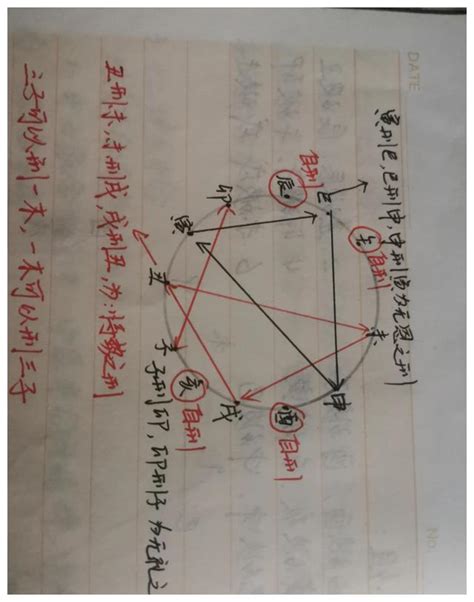 DATE
No.
寅刑巳,巳刑申,申刑寅为无恩之刑
午 自刑
未
巳
申
辰 自刑
酉 自刑
卯
戌
寅
亥 自刑
丑
子
子刑卯,卯刑子 为无礼之
丑刑未,未刑戌,戌刑丑,为:恃势之刑
三子可以刑一木,一木可以刑三子